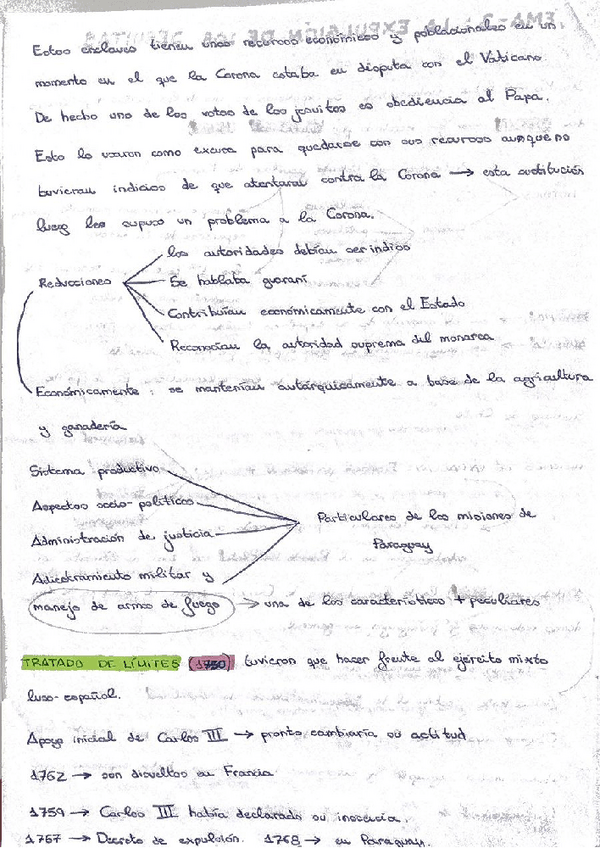 Estos enclaves tienen unos recursos económicos y poblacionales en un
momento en el que la Corona estaba en disputa con el Vaticano.
De hecho uno de los votos de los jesuitas es obediencia al Papa.
Esto lo usaron como excusa para quedarse con sus recursos aunque no
tuvieran indicios de que atentaran contra la Corona → esta sustitución
luego les supuso un problema a la Corona.
Reducciones
los autoridades debían ser indios
Se hablaba guaraní
Contribuían económicamente con el Estado
Reconocían la autoridad suprema del monarca
Económicamente : se mantenían autárquicamente a base de la agricultura
y ganadería
Sistema productivo
Aspectos socio-políticos
Administración de justicia
Adiestramiento militar y
manejo de armas de fuego → una de las características + peculiares
Particulares de las misiones de
Paraguay
TRATADO DE LÍMITES (1750) tuvieron que hacer frente al ejército mixto
luso-español.
Apoyo inicial de Carlos III → pronto cambiaría su actitud
1762 → son disueltos en Francia
1759 → Carlos III había declarado su inocencia.
1767 → Decreto de expulsión. 1768 → en Paraguay.